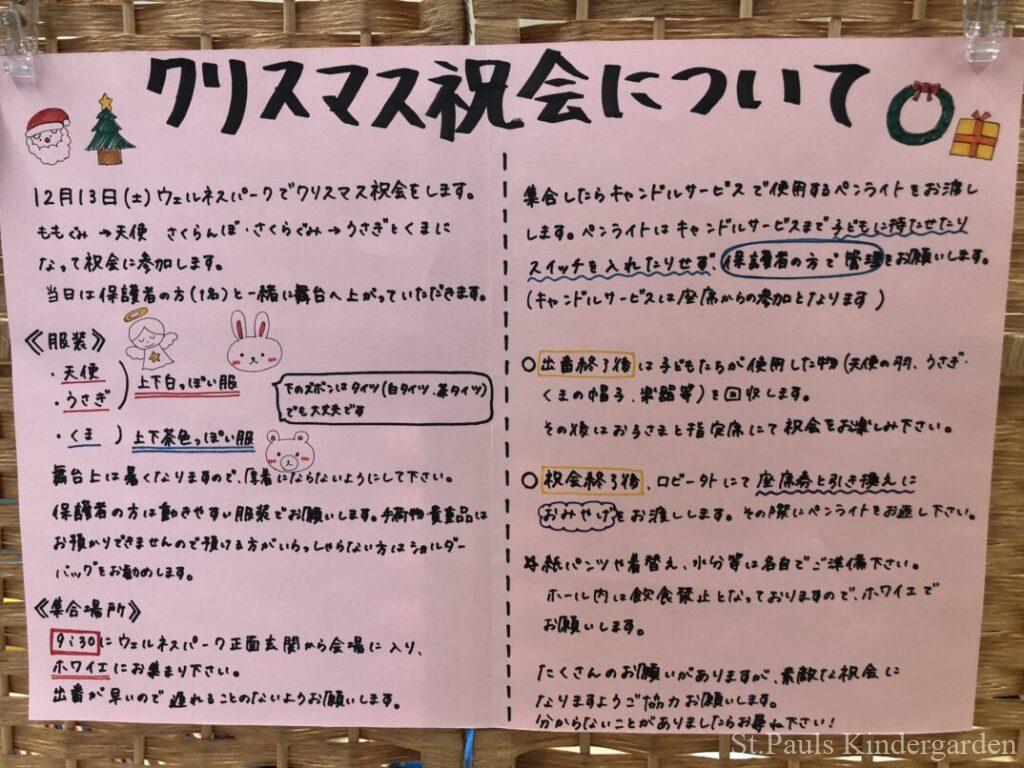 クリスマス祝会について
12月13日(土)ウェルネスパークでクリスマス祝会をします。
ももぐみ→天使 さくらんぼ・さくらぐみ→うさぎとくまに
なって祝会に参加します。
当日は保護者の方(1名)と一緒に舞台へ上がっていただきます。
《服装》
・天使
・うさぎ
上下白っぽい服
・くま ) 上下茶色っぽい服
下のズボンはタイツ(白タイツ、茶タイツ)
でも大丈夫です
舞台上は暑くなりますので、厚着にならないようにして下さい。
保護者の方は動きやすい服装でお願いします。手荷物・貴重品は
お預かりできませんので預ける方がいらっしゃらない方はショルダー
バッグをお勧めします。
《集合場所》
9:30にウェルネスパーク正面玄関から会場に入り、
ホワイエにお集まり下さい。
出番が早いので遅れることのないようお願いします。
集合したらキャンドルサービスで使用するペンライトをお渡し
します。ペンライトはキャンドルサービスまで子どもに持たせたり
スイッチを入れたりせず、保護者の方で管理をお願いします。
(キャンドルサービスは座席からの参加となります)
○出番終了後は子どもたちが使用した物(天使の羽、うさぎ・
くまの帽子、楽器等)を回収します。
その後はお子さまと指定席にて祝会をお楽しみ下さい。
○祝会終了後、ロビー外にて座席券と引き換えに
おみやげをお渡しします。その際にペンライトをお返し下さい。
☆紙パンツや着替え、水分等は各自でご準備下さい。
ホール内は飲食禁止となっておりますので、ホワイエで
お願いします。
たくさんのお願いがありますが、素敵な祝会に
なりますようご協力お願いします。
分からないことがありましたらお尋ね下さい!
St.Pauls Kindergarden